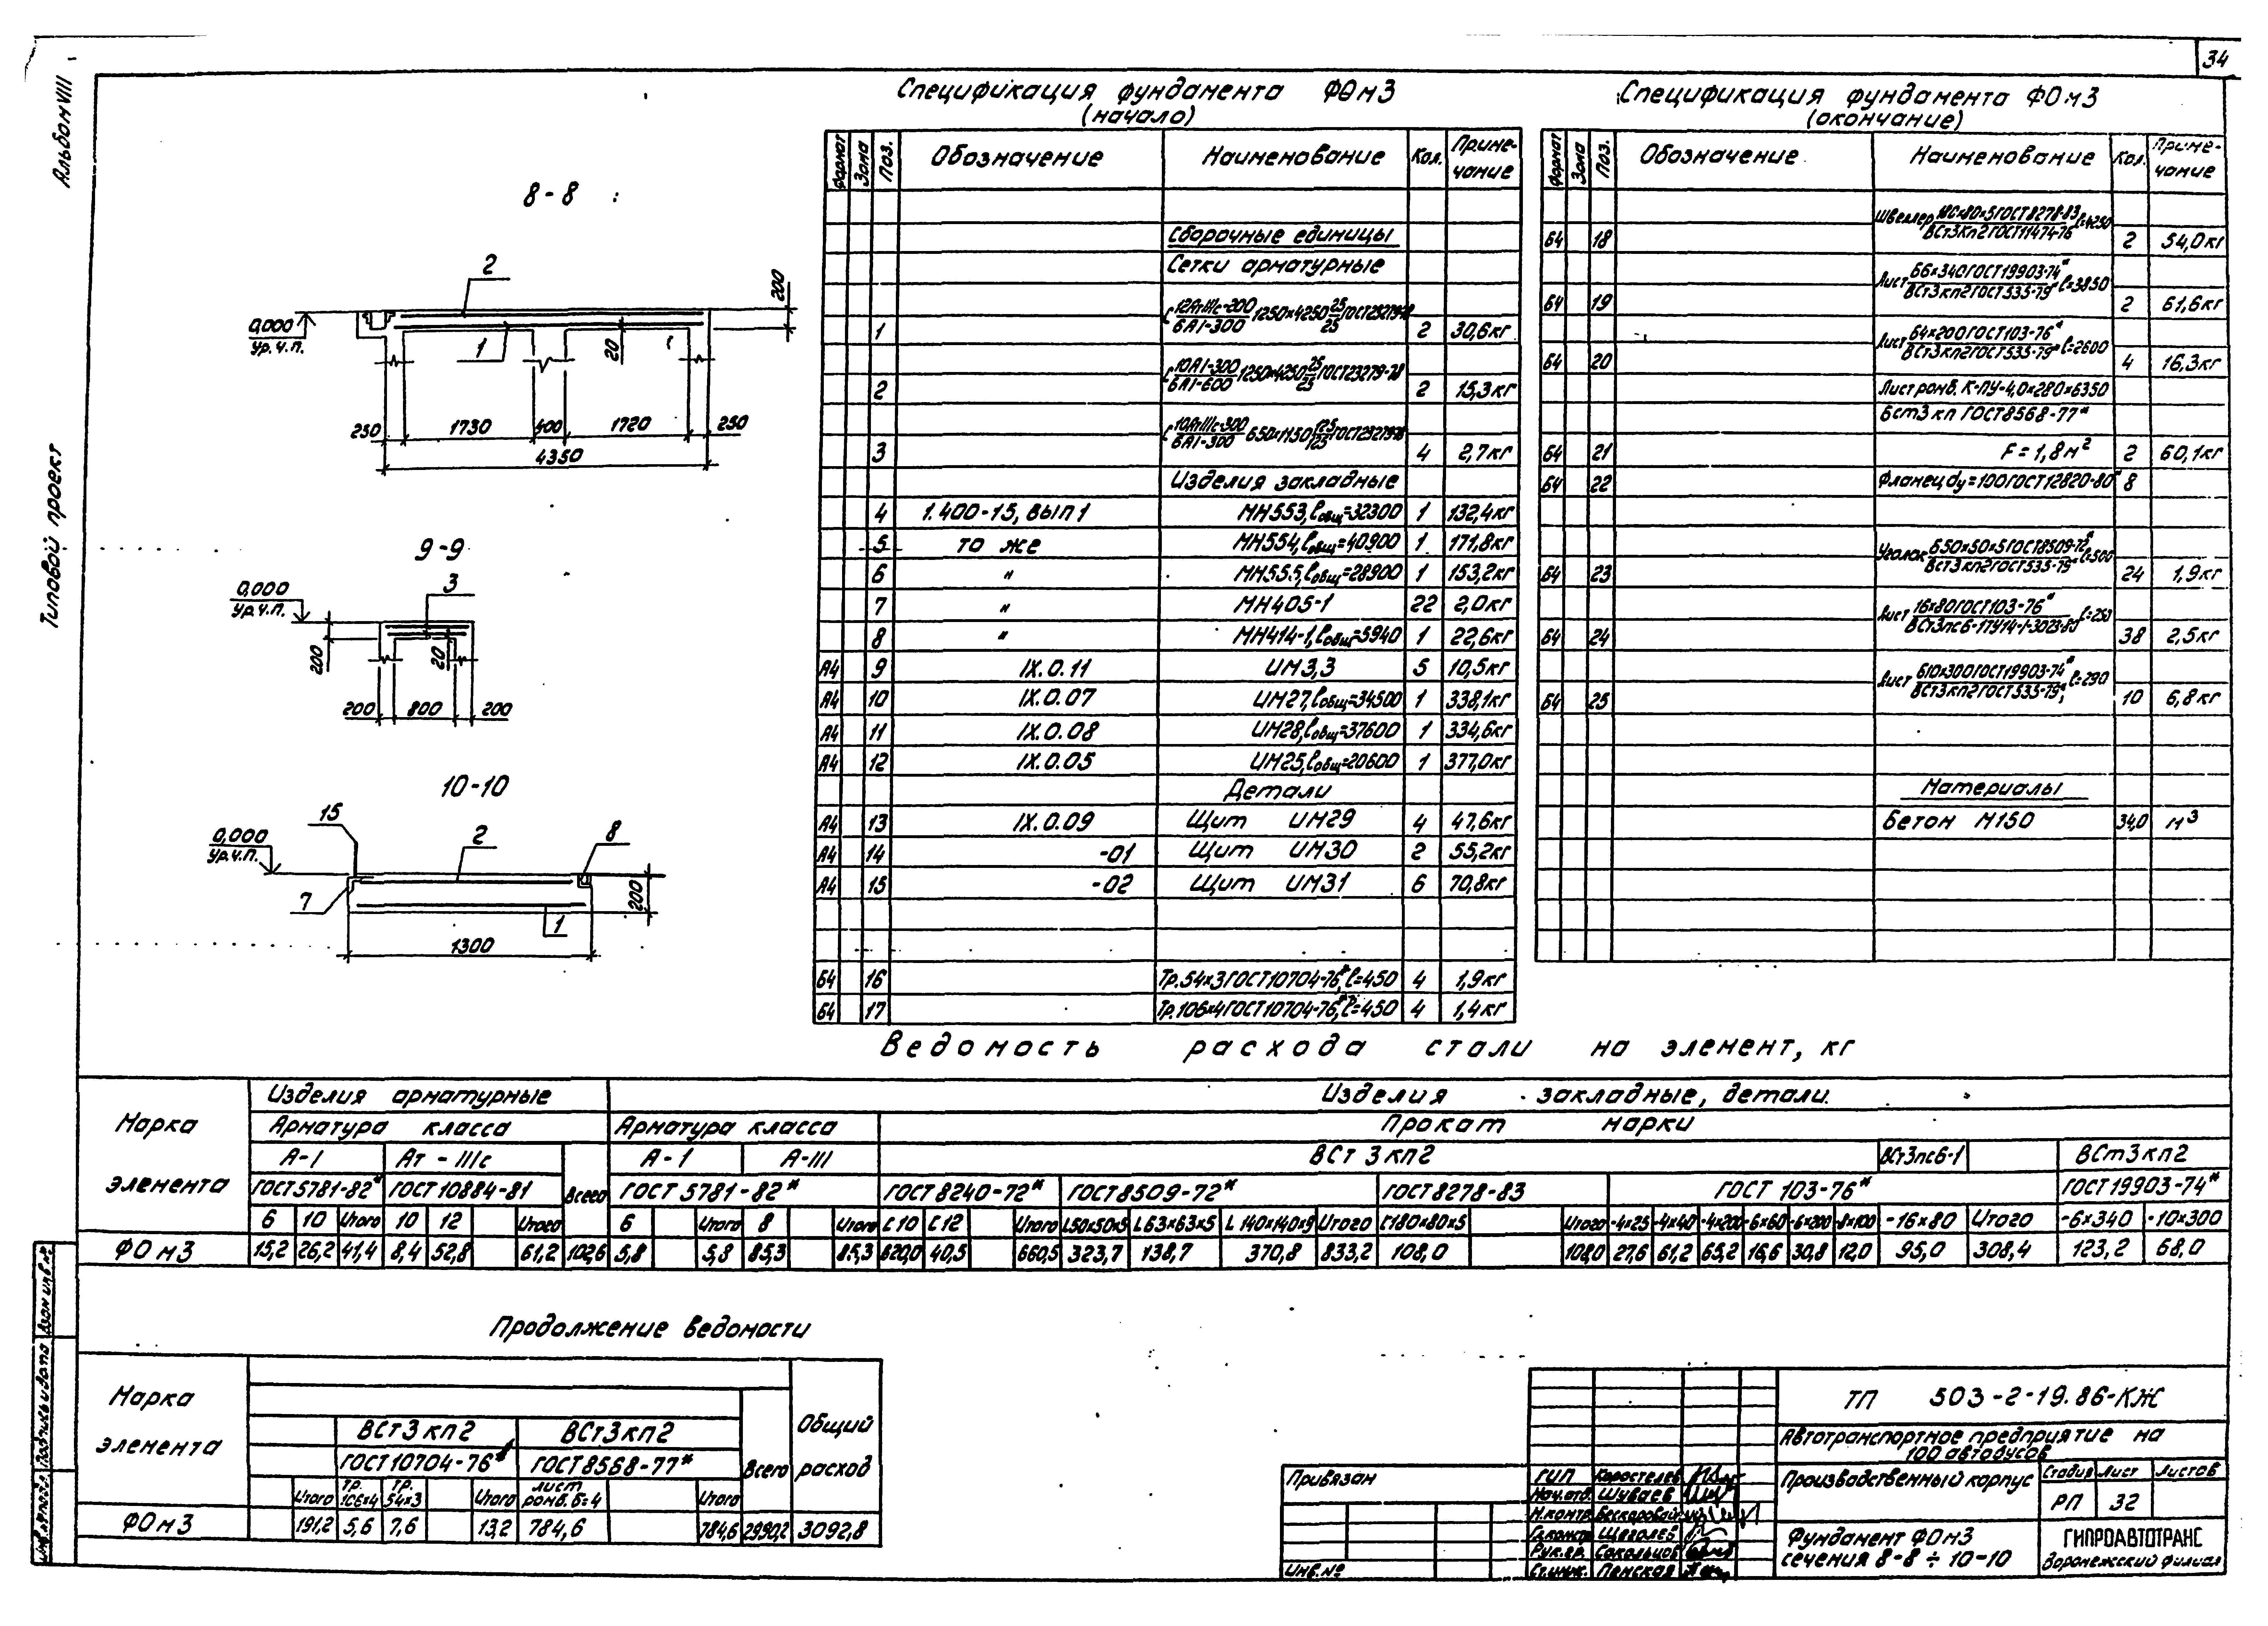 34
Альбом VIII
Типовой проект
8-8
2
1
0,000
Ур.ч.п.
200
20
250 1730 400 1720 250
4350
9-9
3
0,000
Ур.ч.п.
200
20
200 800 200
10-10
15
2
8
0,000
Ур.ч.п.
7
1
200
1300
Спецификация фундамента ФОм3
(начало)
Формат Зона Поз. Обозначение Наименование Кол. Примечание
Сборочные единицы
Сетки арматурные
1 С 12АтIIIс-200/6АI-300 1250×4250 25/25 ГОСТ23279-78 2 30,6кг
2 С 10АI-300/6АI-600 1250×4250 25/25 ГОСТ23279-78 2 15,3кг
3 С 10АтIIIс-300/6АI-300 650×1150 125/125 ГОСТ23279-78 4 2,7кг
Изделия закладные
4 1.400-15, вып 1 МН553, ℓобщ=32300 1 132,4кг
5 то же МН554, ℓобщ=40900 1 171,8кг
6 " МН555, ℓобщ=28900 1 153,2кг
7 " МН405-1 22 2,0кг
8 " МН414-1, ℓобщ=5940 1 22,6кг
А4 9 IX.0.11 ИМ3,3 5 10,5кг
А4 10 IX.0.07 ИМ27, ℓобщ=34500 1 338,1кг
А4 11 IX.0.08 ИМ28, ℓобщ=37600 1 334,6кг
А4 12 IX.0.05 ИМ25, ℓобщ=20600 1 377,0кг
Детали
А4 13 IX.0.09 Щит ИМ29 4 47,6кг
А4 14 -01 Щит ИМ30 2 55,2кг
А4 15 -02 Щит ИМ31 6 70,8кг
Б4 16 Тр.54×3 ГОСТ10704-76*, ℓ=450 4 1,9кг
Б4 17 Тр.106×4 ГОСТ10704-76*, ℓ=450 4 1,4кг
Спецификация фундамента ФОм3
(окончание)
Формат Зона Поз. Обозначение Наименование Кол. Примечание
Б4 18 Швеллер 180×80×5 ГОСТ8278-83/ВСт3кп2 ГОСТ11474-76 ℓ=4250 2 54,0кг
Б4 19 Лист Б6×340 ГОСТ19903-74*/ВСт3кп2 ГОСТ535-79* ℓ=3850 2 61,6кг
Б4 20 Лист Б4×200 ГОСТ103-76*/ВСт3кп2 ГОСТ535-79* ℓ=2600 4 16,3кг
Лист ромб. К-ПУ-4,0×280×6350
Бст3 кп ГОСТ8568-77*
Б4 21 F=1,8м² 2 60,1кг
Б4 22 Фланец dу=100 ГОСТ12820-80* 8
Б4 23 Уголок Б50×50×5 ГОСТ8509-72*/ВСт3кп2 ГОСТ535-79* ℓ=500 24 1,9кг
Б4 24 Лист 16×80 ГОСТ103-76*/ВСт3пс6-1 ТУ14-1-3023-80 ℓ=250 38 2,5кг
Б4 25 Лист Б10×300 ГОСТ19903-74*/ВСт3кп2 ГОСТ535-79* ℓ=290 10 6,8кг
Материалы
Бетон М150 34,0 м³
Ведомость расхода стали на элемент, кг
Марка элемента
Изделия арматурные Изделия закладные, детали
Арматура класса Арматура класса Прокат марки
А-I Ат-IIIс Всего А-I А-III ВСт 3 кп2 ВСт3пс6-1 ВСт3кп2
ГОСТ5781-82* ГОСТ10884-81 ГОСТ 5781-82* ГОСТ8240-72* ГОСТ8509-72* ГОСТ8278-83 ГОСТ 103-76* ГОСТ19903-74*
6 10 Итого 10 12 Итого 6 Итого 8 Итого С10 С12 Итого L50×50×5 L63×63×5 L140×140×9 Итого С180×80×5 Итого -4×25 -4×40 -4×200 -6×60 -6×200 -8×100 -16×80 Итого -6×340 -10×300
ФОм3 15,2 26,2 41,4 8,4 52,8 61,2 102,6 5,8 5,8 85,3 85,3 620,0 40,5 660,5 323,7 138,7 370,8 833,2 108,0 108,0 27,6 61,2 65,2 16,6 30,8 12,0 95,0 308,4 123,2 68,0
Продолжение ведомости
Марка элемента
Всего Общий расход
ВСт3кп2 ВСт3кп2
ГОСТ10704-76* ГОСТ8568-77*
Итого Тр. 106×4 Тр. 54×3 Итого Лист ромб. Б=4 Итого
ФОм3 191,2 5,6 7,6 13,2 784,6 784,6 2990,2 3092,8
Привязан
Инв.№
ГИП Коростелев
Нач.отд. Шуваев
Н.контр. Бескоровайный
Гл.констр. Щеголев
Рук.гр. Сокольцов
Ст.инж. Панская
ТП 503-2-19.86-КЖ
Автотранспортное предприятие на
100 автобусов
Производственный корпус
Стадия Лист Листов
РП 32
Фундамент ФОм3
сечения 8-8 ÷ 10-10
ГИПРОАВТОТРАНС
Воронежский филиал
Инв.№ подл. Подпись и дата Взам инв.№